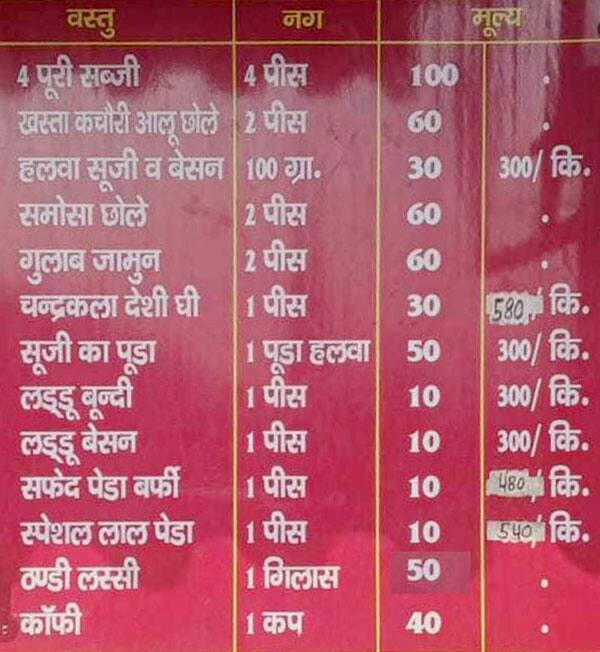 वस्तु नग मूल्य
4 पूरी सब्जी 4 पीस 100 .
खस्ता कचौरी आलू छोले 2 पीस 60 .
हलवा सूजी व बेसन 100 ग्रा. 30 300/ कि.
समोसा छोले 2 पीस 60 .
गुलाब जामुन 2 पीस 60 .
चन्द्रकला देशी घी 1 पीस 30 580/ कि.
सूजी का पूडा 1 पूडा हलवा 50 300/ कि.
लड्डू बून्दी 1 पीस 10 300/ कि.
लड्डू बेसन 1 पीस 10 300/ कि.
सफेद पेडा बर्फी 1 पीस 10 480/ कि.
स्पेशल लाल पेडा 1 पीस 10 540/ कि.
ठण्डी लस्सी 1 गिलास 50 .
कॉफी 1 कप 40 .